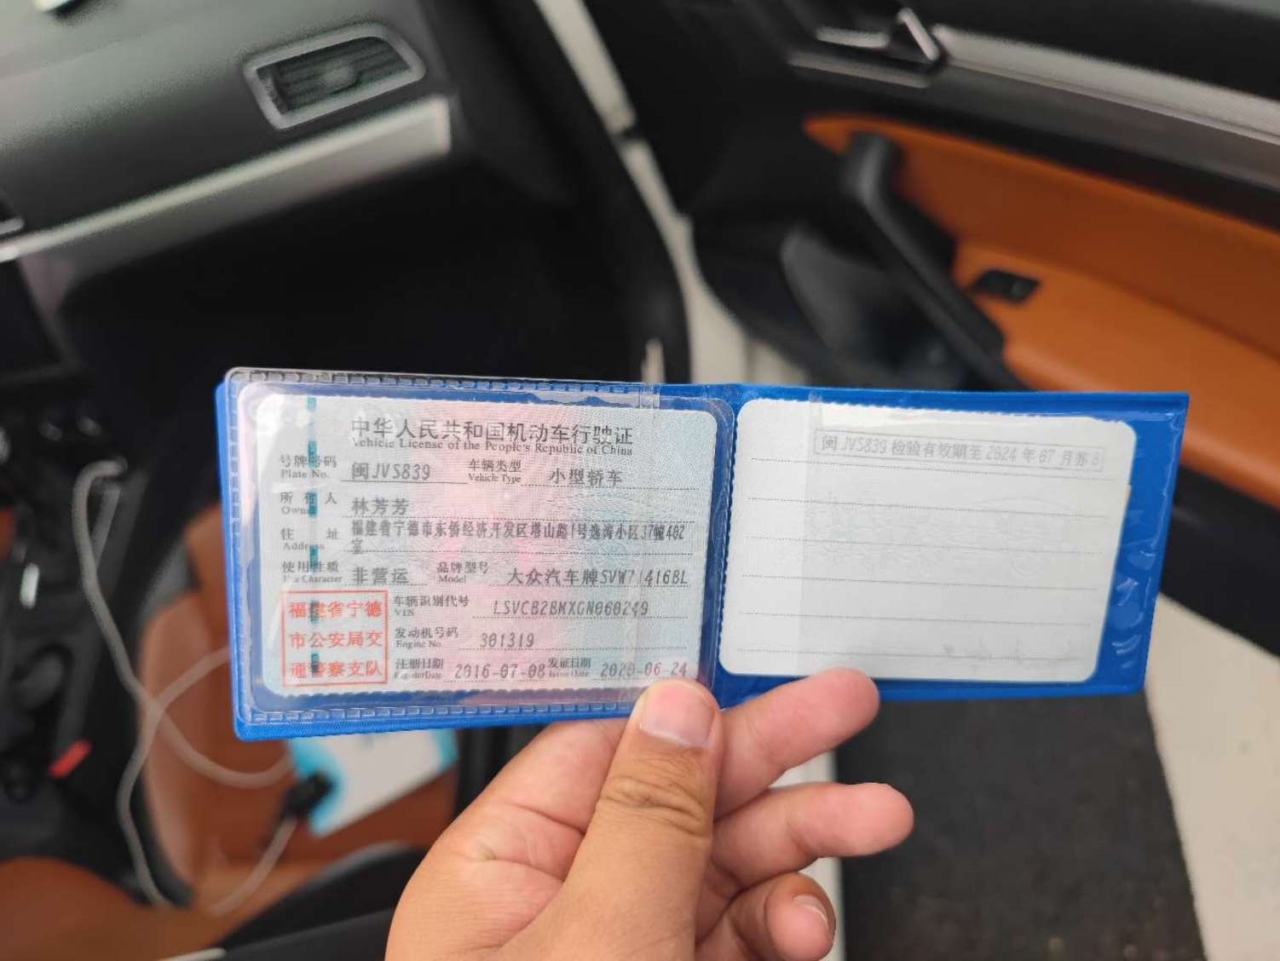 中华人民共和国机动车行驶证
Vehicle License of the People's Republic of China
号牌号码 闽JVS839 车辆类型 小型轿车
Plate No. Vehicle Type
所有人 林芳芳
Owner
住址 福建省宁德市东侨经济开发区塔山路1号逸涛小区37幢402
Address 室
使用性质 非营运 品牌型号 大众汽车牌SVW71416BL
Use Character Model
福建省宁德
市公安局交
通警察支队
车辆识别代号 LSVCB2BMXGN060249
VIN
发动机号码 301319
Engine No.
注册日期 2016-07-08 发证日期 2020-06-24
Register Date Issue Date
闽JVS839 检验有效期至2024年07月